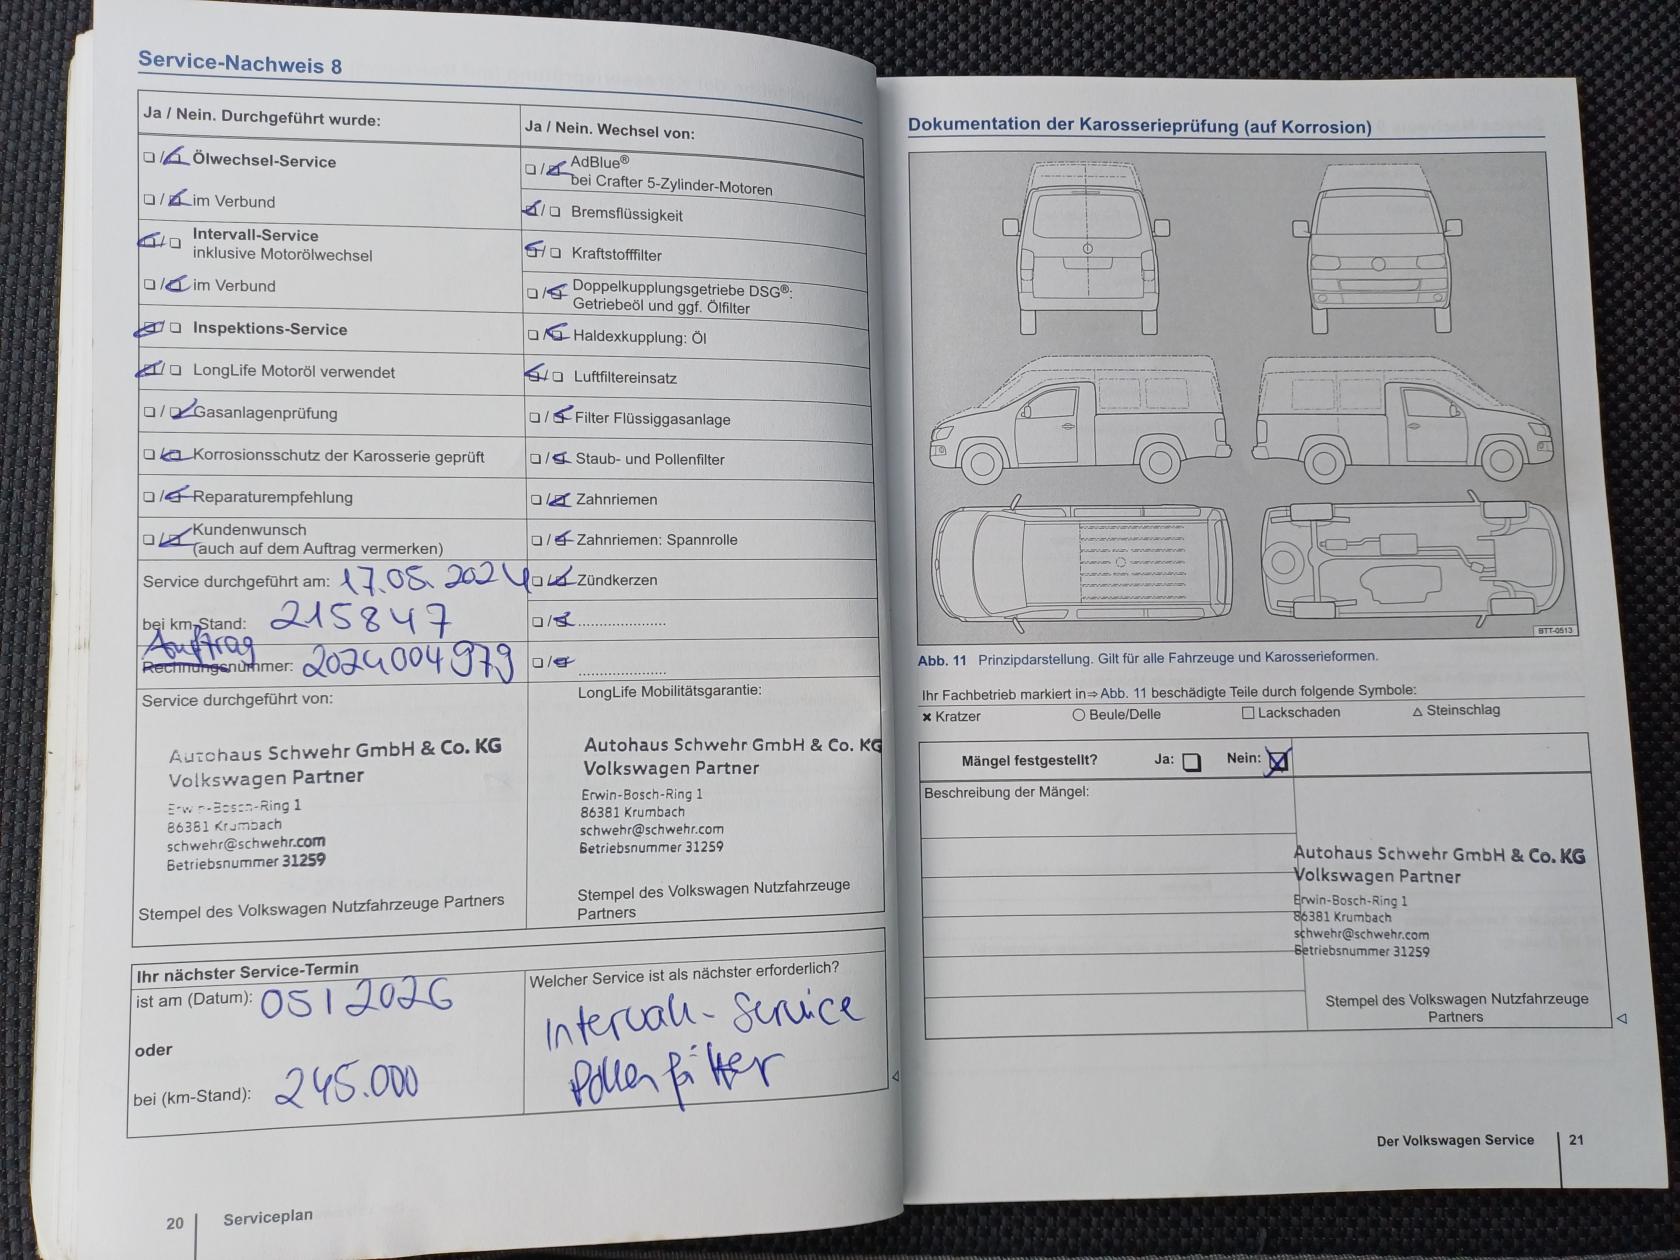 Service-Nachweis 8
Ja / Nein. Durchgeführt wurde:
Ölwechsel-Service
im Verbund
Intervall-Service
inklusive Motorölwechsel
im Verbund
Inspektions-Service
LongLife Motoröl verwendet
Gasanlagenprüfung
Korrosionsschutz der Karosserie geprüft
Reparaturempfehlung
Kundenwunsch
(auch auf dem Auftrag vermerken)
Service durchgeführt am: 17.05.2024
bei km-Stand: 215847
Auftrag
Rechnungsnummer: 2024004979
Service durchgeführt von:
Autohaus Schwehr GmbH & Co. KG
Volkswagen Partner
Erwin-Bosch-Ring 1
86381 Krumbach
schwehr@schwehr.com
Betriebsnummer 31259
Stempel des Volkswagen Nutzfahrzeuge Partners
Ja / Nein. Wechsel von:
AdBlue®
bei Crafter 5-Zylinder-Motoren
Bremsflüssigkeit
Kraftstofffilter
Doppelkupplungsgetriebe DSG®:
Getriebeöl und ggf. Ölfilter
Haldexkupplung: Öl
Luftfiltereinsatz
Filter Flüssiggasanlage
Staub- und Pollenfilter
Zahnriemen
Zahnriemen: Spannrolle
Zündkerzen
LongLife Mobilitätsgarantie:
Autohaus Schwehr GmbH & Co. KG
Volkswagen Partner
Erwin-Bosch-Ring 1
86381 Krumbach
schwehr@schwehr.com
Betriebsnummer 31259
Stempel des Volkswagen Nutzfahrzeuge
Partners
Ihr nächster Service-Termin
ist am (Datum): 05 | 2026
oder
bei (km-Stand): 245.000
Welcher Service ist als nächster erforderlich?
Intervall-Service
Pollenfilter
20 Serviceplan
Dokumentation der Karosserieprüfung (auf Korrosion)
BTT-0513
Abb. 11 Prinzipdarstellung. Gilt für alle Fahrzeuge und Karosserieformen.
Ihr Fachbetrieb markiert in⇒Abb. 11 beschädigte Teile durch folgende Symbole:
× Kratzer ○ Beule/Delle □ Lackschaden △ Steinschlag
Mängel festgestellt? Ja: Nein:
Beschreibung der Mängel:
Autohaus Schwehr GmbH & Co. KG
Volkswagen Partner
Erwin-Bosch-Ring 1
86381 Krumbach
schwehr@schwehr.com
Betriebsnummer 31259
Stempel des Volkswagen Nutzfahrzeuge
Partners
Der Volkswagen Service 21